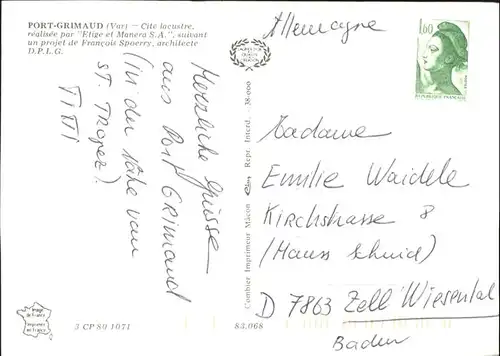 PORT-GRIMAUD (Var) — Cité lacustre,
réalisée par "Etige et Manera S.A.", suivant
un projet de François Spoerry, architecte
D.P.L.G.
Herzliche Grüsse
aus Port Grimaud
(in der Nähe van
ST. Tropez).
TITI
image
de France
imprimée
en France
3 CP 80 1071
83.068
Combier Imprimeur Mâcon
Repr. Interd. 38-000
Allemagne
1,60
REPUBLIQUE FRANCAISE
Madame
Emilie Waidele
Kirchstrasse 8
(Haus Schmid)
D 7863 Zell Wiesental
Baden